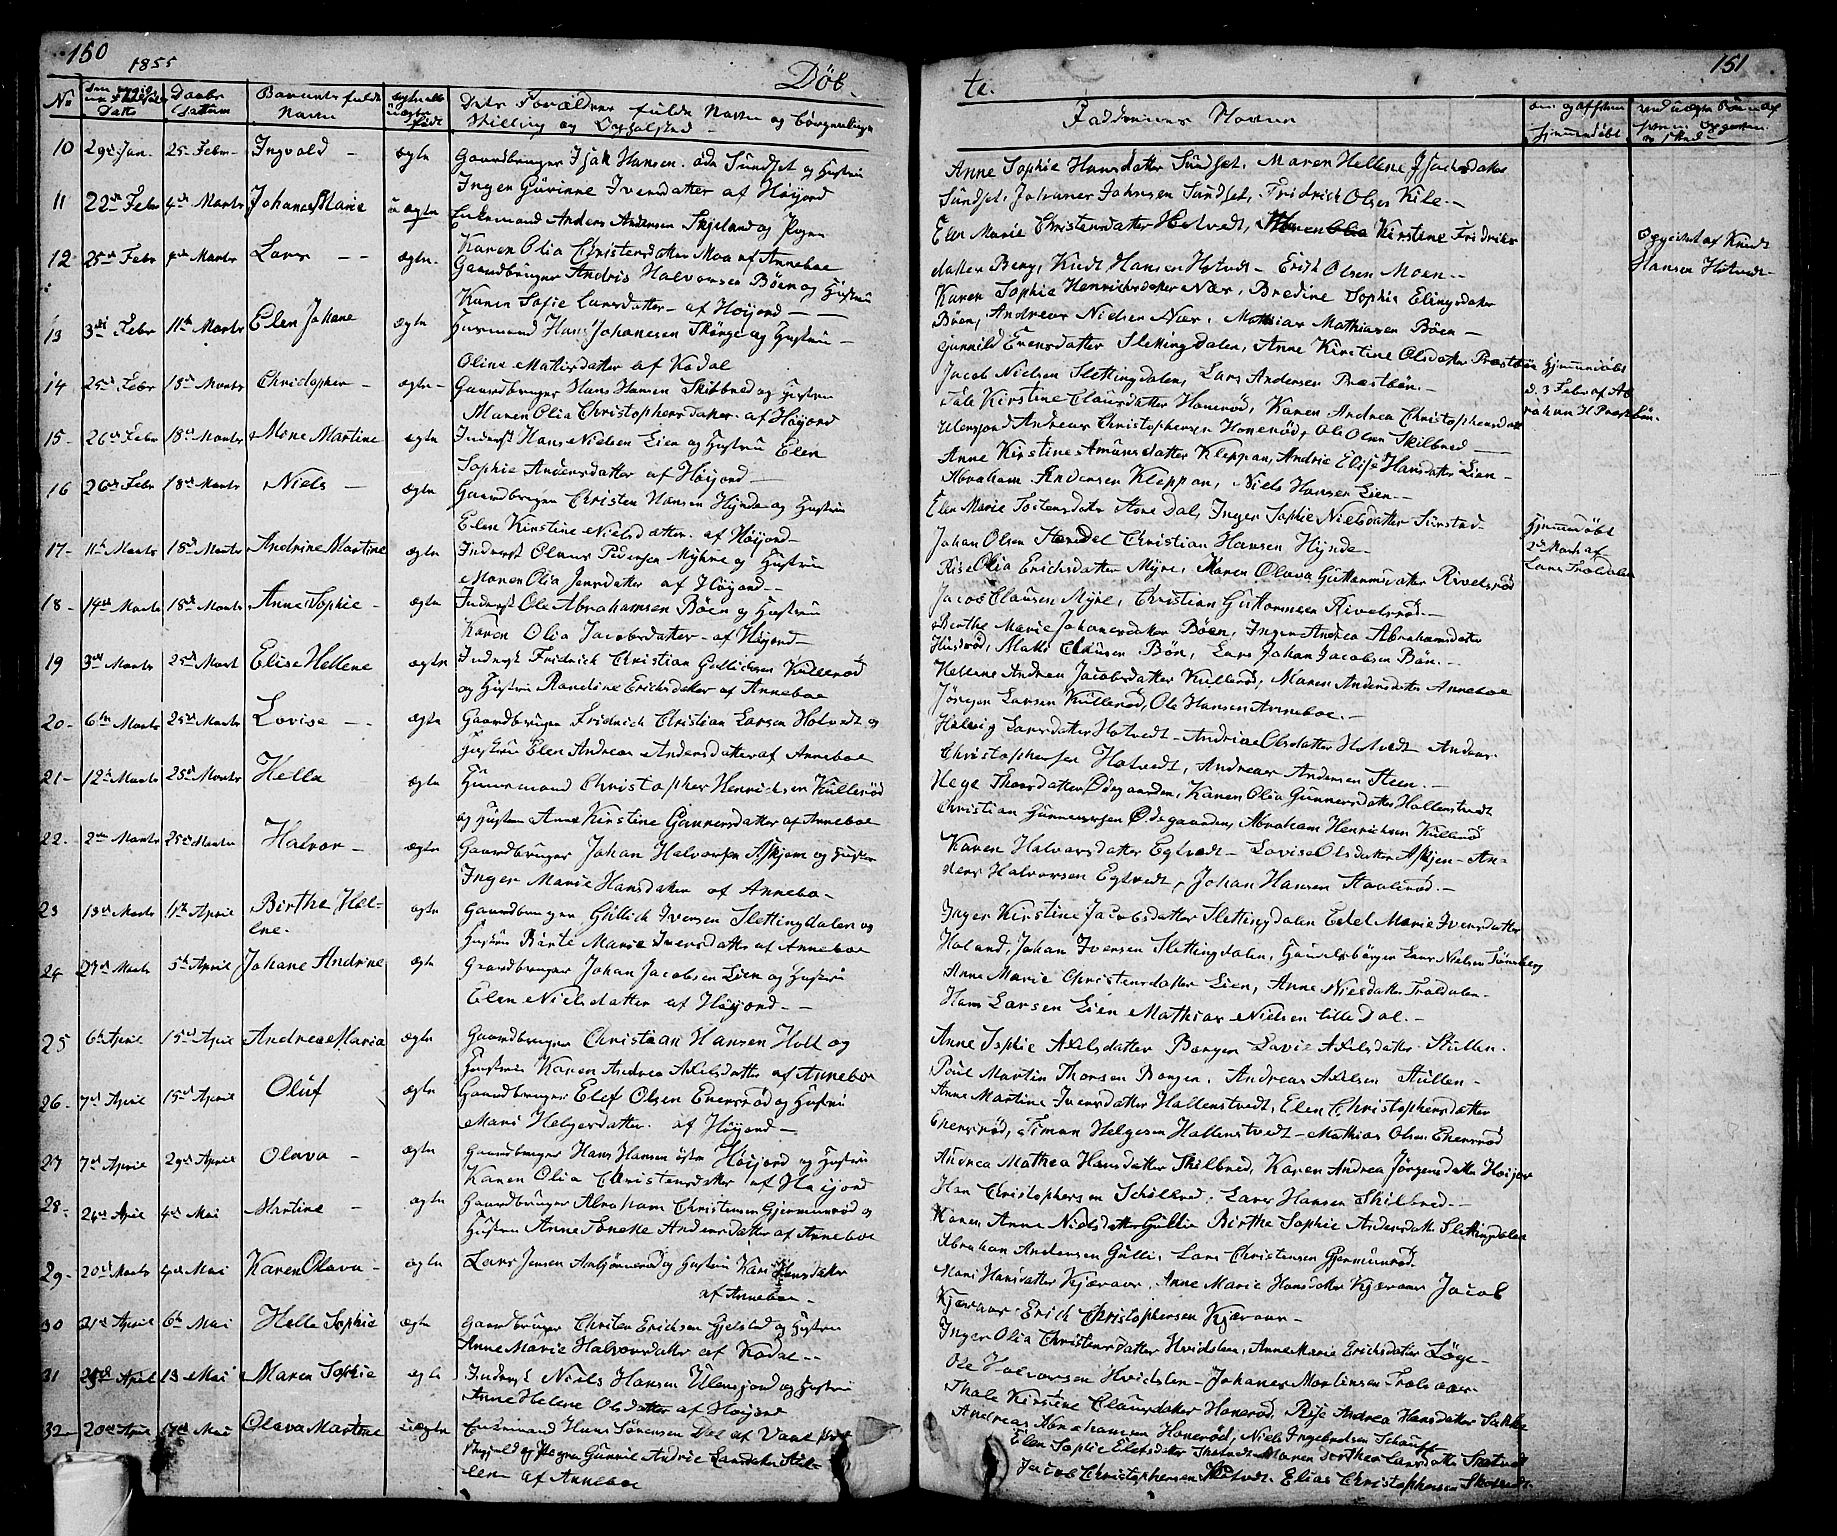 150
1855
Døb
No
Daabs Dattum
Barnets fulde Navn
Dets Forældres fulde Navn og borgerlige
Stilling og Opholdsted
10 29de Jan. 25 Febr Ingvald - ægte Gaardbruger Isak Hansen Sundset og Hustru
Inger Gurinne Iversdatter af Høijord
11 22de Febr 4de Marts Johanes Marie uægte Enkemand Anders Andersen Skjeland og Pigen
Karen Olia Christensdatter Moa af Anneboe
12 25de Febr Marts Lars - - ægte Gaardbruger Andris Halvorsen Böen og Hustru
Karen Sofie Larsdatter - af Høijord
13 3di Febr 11te Marts Elen Johane ægte Husmand Hans Johanesen og Hustru -
Oline Matisdatter af Kodal
14 25de Febr 18de Marts Christopher - ægte - Gaardbruger Hans Hansen Skilbred og Hustru
Maren Olia Christophersdatter af Høijord
15 - 26de Febr 18de Marts Mine Martine ægte Inderst Hans Nielsen Lien og Hustru Elen
Sophie Andersdatter af Høijord -
16 26de Febr 18de Marts Niels - ægte Gaardbruger Christen Hansen Hynde og Hustru
Elen Kirstine Nielsdatter af Høijord -
17 - 11te Marts 18de Marts Andrine Martine ægte Inderst Olaus Pedersen Myhre og Hustru
Maren Olia Jensdatter af Høijord -
18 - 14de Marts 18de Marts Anne Sophie - ægte Inderst Ole Abrahamsen Böen og Hustru
Karen Olia Jacobsdatter - af Høijord -
19 3de Marts 25de Mart Elise Hellene ægte Inderst Fridrich Christian Gullichsen Kullerød
og Hustru Randine Ericksdatter af Anneboe
20 - 6te Marts 25de Marts Lovise - - ægte Gaardbruger Fridrich Christian Larsen Hotvedt og
Hustru Elen Andrea Andersdatter af Anneboe
21 - 12te Marts 25de Marts Helle ægte Husmand Christopher Henrichsen Kullerød
og Hustru Anne Kirstine Gunnersdatter af Anneboe
22. 2den Marts 25de Marts Halvor - ægte Gaardbruger Johan Halvorsen Askjem og Hustru
Inger Marie Hansdatter af Annebo -
23 13de Marts 1ste April Birthe Hel- ægte Gaardbruger Gullich Iversen Slettingdalen og
ene. Hustru Birte Marie Iversdatter af Anneboe
24 27de Marts 5te April Johane Andrine ægte Gaardbruger Johan Jacobsen Lien og Hustru
Elen Nielsdatter af Høijord -
25 6te April 15de April Andrea Maria ægte Gaardbruger Christian Hansen Holt og
Hustru Karen Andrea Axelsdatter af Anneboe
26 - 7de April 15de April Oluf ægte Gaardbruger Elef Olsen Enersrød og Hustru
Mari Helgesdatter af Høijord -
27 7de April 29de April Olava - ægte Gaardbruger Hans Hansen østre Høijord og Hustru
Karen Olia Christensdatter af Høijord
28 - 24de April Mai Martine - ægte Gaardbruger Abraham Christensen Gjermunrød og
Hustru Anne Andersdatter af Anneboe
29 - 20de Marts Mai Karen Olava - ægte Lars Jensen og Hustru Kari Hansdatter
af Anneboe -
30 21de April 6te Mai Helle Sophie ægte Gaardbruger Christen Ericksen Gjelstad og Hustru
Anne Marie Halvorsdatter af Kodal -
31 April 13 Mai Maren Sophie ægte Inderst Niels Hansen Ulensjord og Hustru
Anne Helene Olsdatter af Høijord
32 - 20de April 17de Mai Olava Martine uægte Enkemand Hans Sørensen Dal af Vaale
og Pigen Gunnil Andrie Larsdatter Stul-
len af Anneboe
151
te.
Faddernes Navne
hjemmedøbt
Anne Sophie Hansdatter Sundset, Maren Hellene Isachsdatter
Sundset, Johanes Johnsen Sundset, Fridrich Olsen Kile -
Elen Marie Christensdatter Hotvedt, Kirstine Fridriks
datter Berg, Knudt Hansen Hotvedt - Erick Olsen Moen -
Opgivet af Knudt
Hansen Hotvedt -
Karen Sophie Henrichsdatter Nær, Bredine Sophie Elingsdatter
Böen, Andreas Nielsen Nær, Mathias Mathiasen Böen -
Gunnild Evensdatter Slettingdalen, Anne Kirstine Olsdatter Præstbøn
Jacob Nielsen Slettingdalen, Lars Andersen Præstbøn -
Hjemmedøbt
d. 3 Febr af Ab
raham H Præstbøn -
Tale Kirstine Clausdatter Honerød, Karen Andrea Christophersdatt
Ulensjord Andreas Christophersen Honerød, Ole Olsen Skilbred
Anne Kirstine Amunsdatter Kleppan, Andrie Elise Hansdatter Lien -
Abraham Andersen Kleppan, Niels Hansen Lien -
Elen Marie Tostensdatter Dal, Inger Sophie Nielsdatter Surstad -
Johan Olsen Christian Hansen Hynde -
Hjemmedøbt
2de Marts af
Lars Troldalen
Rise Olia Ericksdatter Myre, Maren Olava Guttormsdatter Rivelsrød
Jacob Clausen Myre, Christian Guttormsen Rivelsrød -
Berthe Marie Johanesdatter Böen, Inger Andrea Abrahamsdatter
Husrød, Clausen Bön, Lars Johan Jacobsen Bön -
Hellene Andrea Jacobsdatter Kullerød, Maren Andersdatter Anneboe
Jørgen Larsen Kullerød, Ole Hansen Anneboe -
Helvig Larsdatter Hotvedt - Andrine Olsdatter Hotvedt Anders
Christophersen Hotvedt, Andreas Andersen Steen -
Hege Thorsdatter Ødegaarden, Karen Olia Gunnersdatter Hallenstvedt
Christian Gunnersen Ødegaarden, Abraham Henrichsen Kullerød
Karen Halvorsdatter Egtvedt - Lovise Olsdatter Askjem - An-
ders Halvorsen Egtvedt, Johan Hansen Staalerød -
Inger Kirstine Jacobsdatter Slettingdalen Edel Marie Iversdatter
Holand, Johan Iversen Slettingdalen, Handelsborger Lars Nielsen Tønsberg
Anne Marie Christensdatter Lien, Anne Nielsdatter Troldalen -
Hans Larsen Lien Mathias Nielsen lille Dal -
Anne Sophie Axelsdatter Borgen Lovise Axelsdatter Stullen -
Poul Martin Thorsen Borgen, Andreas Axelsen Stullen -
Anne Martine Iversdatter Hallenstvedt, Elen Christophersdatter
Enersrød, Simon Helgesen Hallenstvedt - Mathias Olsen Enersrød
Andrea Mathea Hansdatter Skilbred, Karen Andrea Jørgensdatter Høijor
Han Christophersen Schilbred, Lars Hansen Skilbred -
Karen Anne Nielsdatter Gullie Birthe Sophie Andersdatter Slettingdalen
Abraham Andersen Gulli, Lars Christensen Gjermunrød
Mari Hansdatter Kjæraas, Anne Marie Hansdatter Kjæraas Jacob
Kjæraas, Erich Christophersen Kjæraas -
Inger Olia Christensdatter Hvidsten, Anne Marie Ericksdatter Løge -
Ole Halvorsen Hvidsten - Johanes Martinsen Trolsaas -
Thale Kirstine Clausdatter Honerød, Rise Andrea Hansdatter
Andreas Abrahamsen Honerød, Niels Ingebretsen
Elen Sophie Elefsdatter Skatvedt Maren Dorthea Larsdatter Skatvedt
Jacob Christophersen Elias Christophersen Skatvedt -